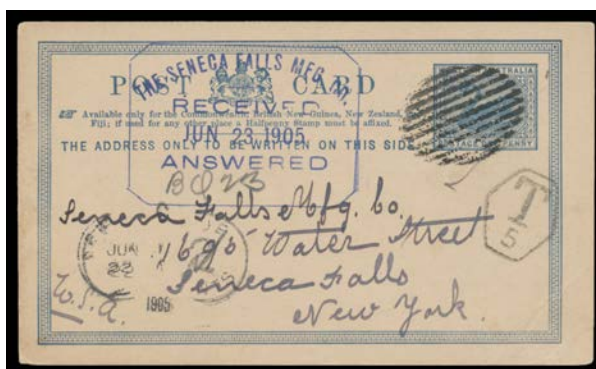 POST CARD
THE SENECA FALLS MFG. CO.
RECEIVED
JUN 23 1905
ANSWERED
Available only for the Commonwealth, British New Guinea, New Zealand,
Fiji; if used for any other place a Halfpenny Stamp must be affixed.
THE ADDRESS ONLY TO BE WRITTEN ON THIS SIDE
AUSTRALIA
POSTAGE PENNY
T
5
Seneca Falls Mfg. Co.
Water Street
Seneca Falls
New York.
U.S.A.
JUN
22
1905